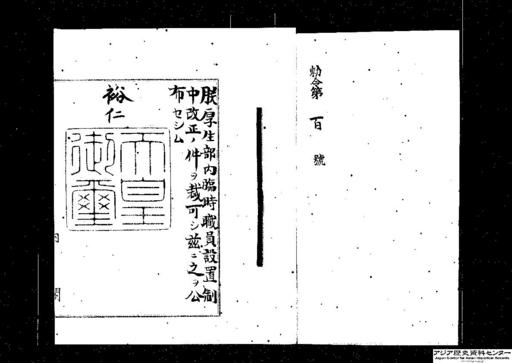 勅令第百號
朕厚生部内臨時職員設置制
中改正ノ件ヲ裁可シ茲ニ之ヲ公
布セシム
裕仁
天皇
御璽
内閣
アジア歴史資料センター
Japan Center for Asian Historical Records